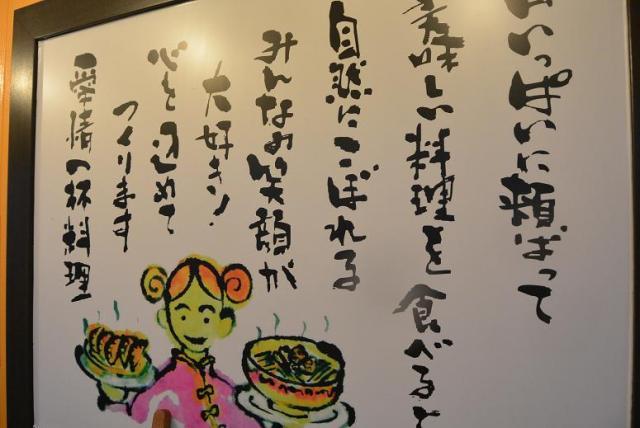 口いっぱいに頬ばって
美味しい料理を食べると
自然にこぼれる
みんなの笑顔が
大好き!
心を込めて
つくります
愛情の杯料理